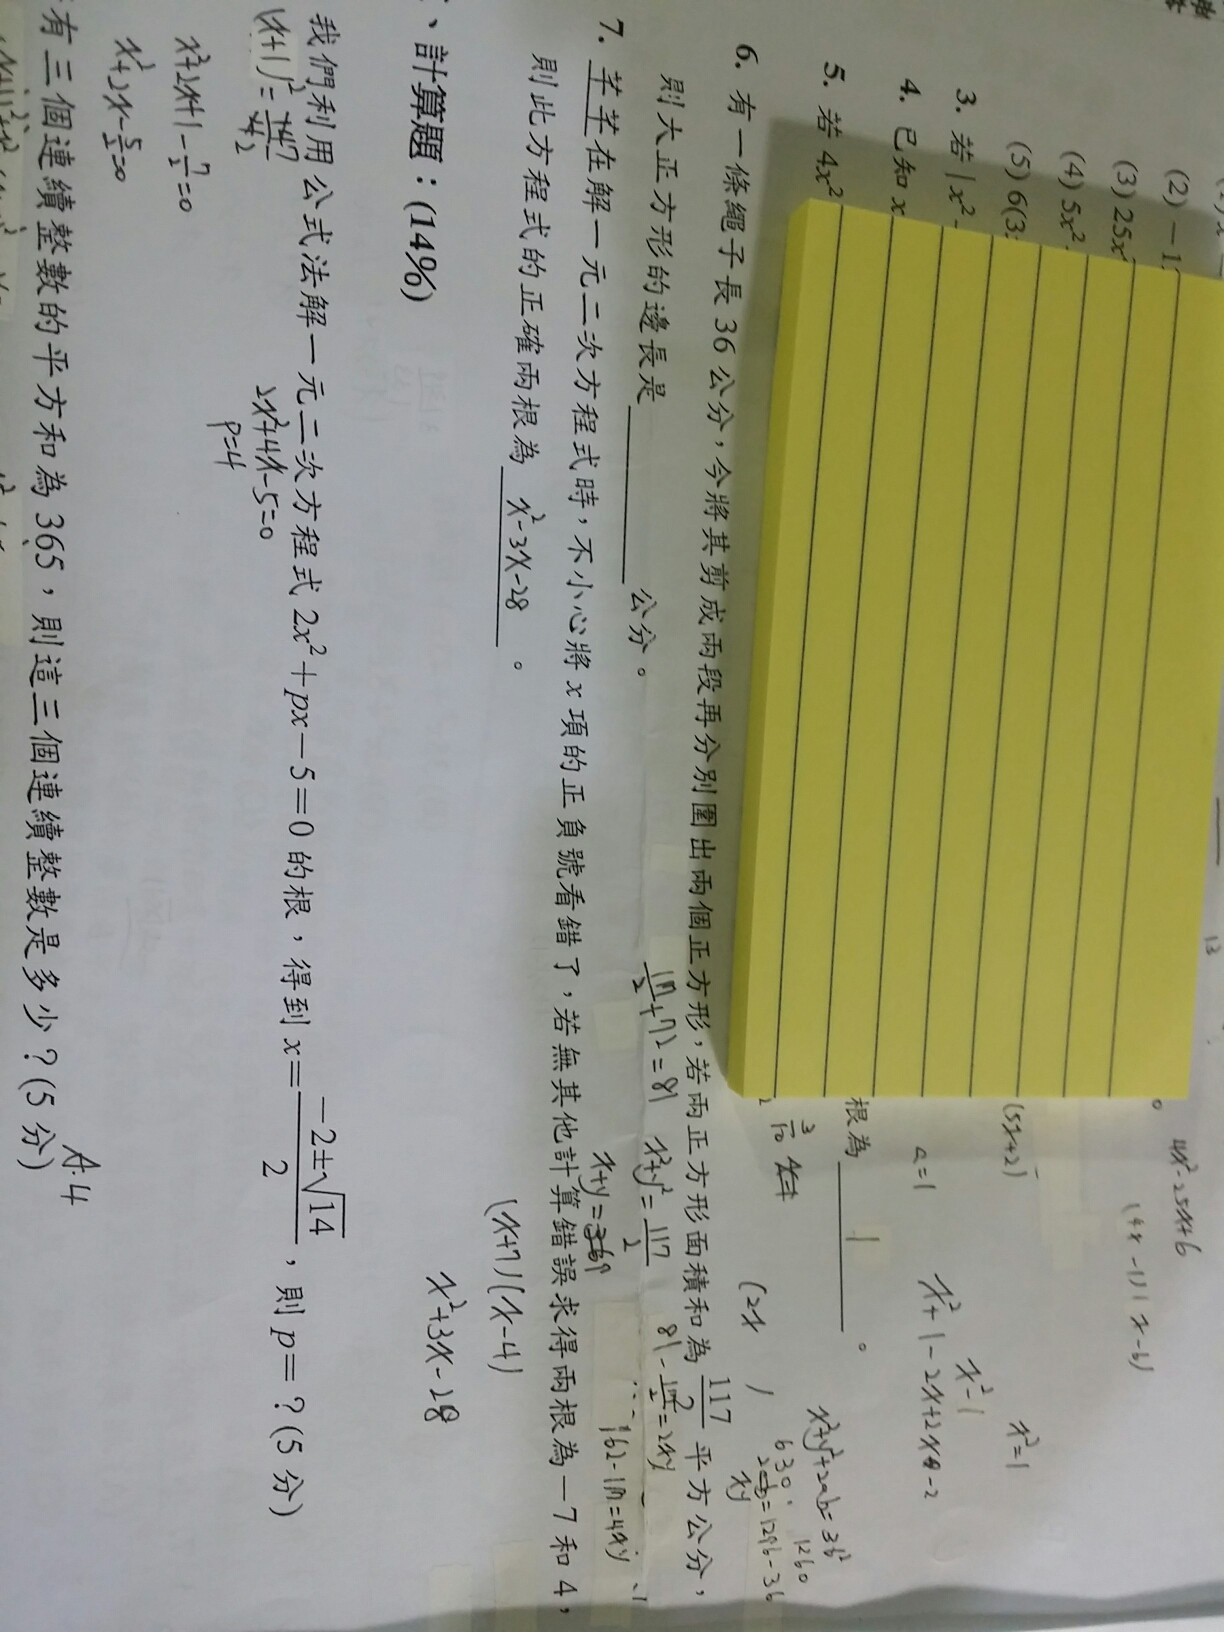 (2) －1
(3) 25x
(4) 5x²
(5) 6(3
3. 若 | x² -
4. 已知 x
a=1
5. 若 4x²
根為 1 。
6. 有一條繩子長 36 公分，今將其剪成兩段再分別圍出兩個正方形，若兩正方形面積和為 117/2 平方公分，
則大正方形的邊長是 公分。
7. 芊芊在解一元二次方程式時，不小心將 x 項的正負號看錯了，若無其他計算錯誤求得兩根為－7 和 4，
則此方程式的正確兩根為 x²-3x-28 。
4x²-25x+6
(5x+2)
x²=1
x²-1
x²+1-2x+2x
x²+y²+2ab=36²
1260
630
xy
(2x
3/10
117/2+y2=81
x²+y²=117/2
81-117/2=2xy
x+y=
162-117=4xy
(x+7)(x-4)
x²+3x-28
、計算題：(14%)
我們利用公式法解一元二次方程式 2x²＋px－5＝0 的根，得到 x＝(－2±√14)/2，則 p＝？(5 分)
2x²+4x-5=0
p=4
x²+2x+1-7/2=0
x²+2x-5/2=0
A:4
有三個連續整數的平方和為 365，則這三個連續整數是多少？(5 分)